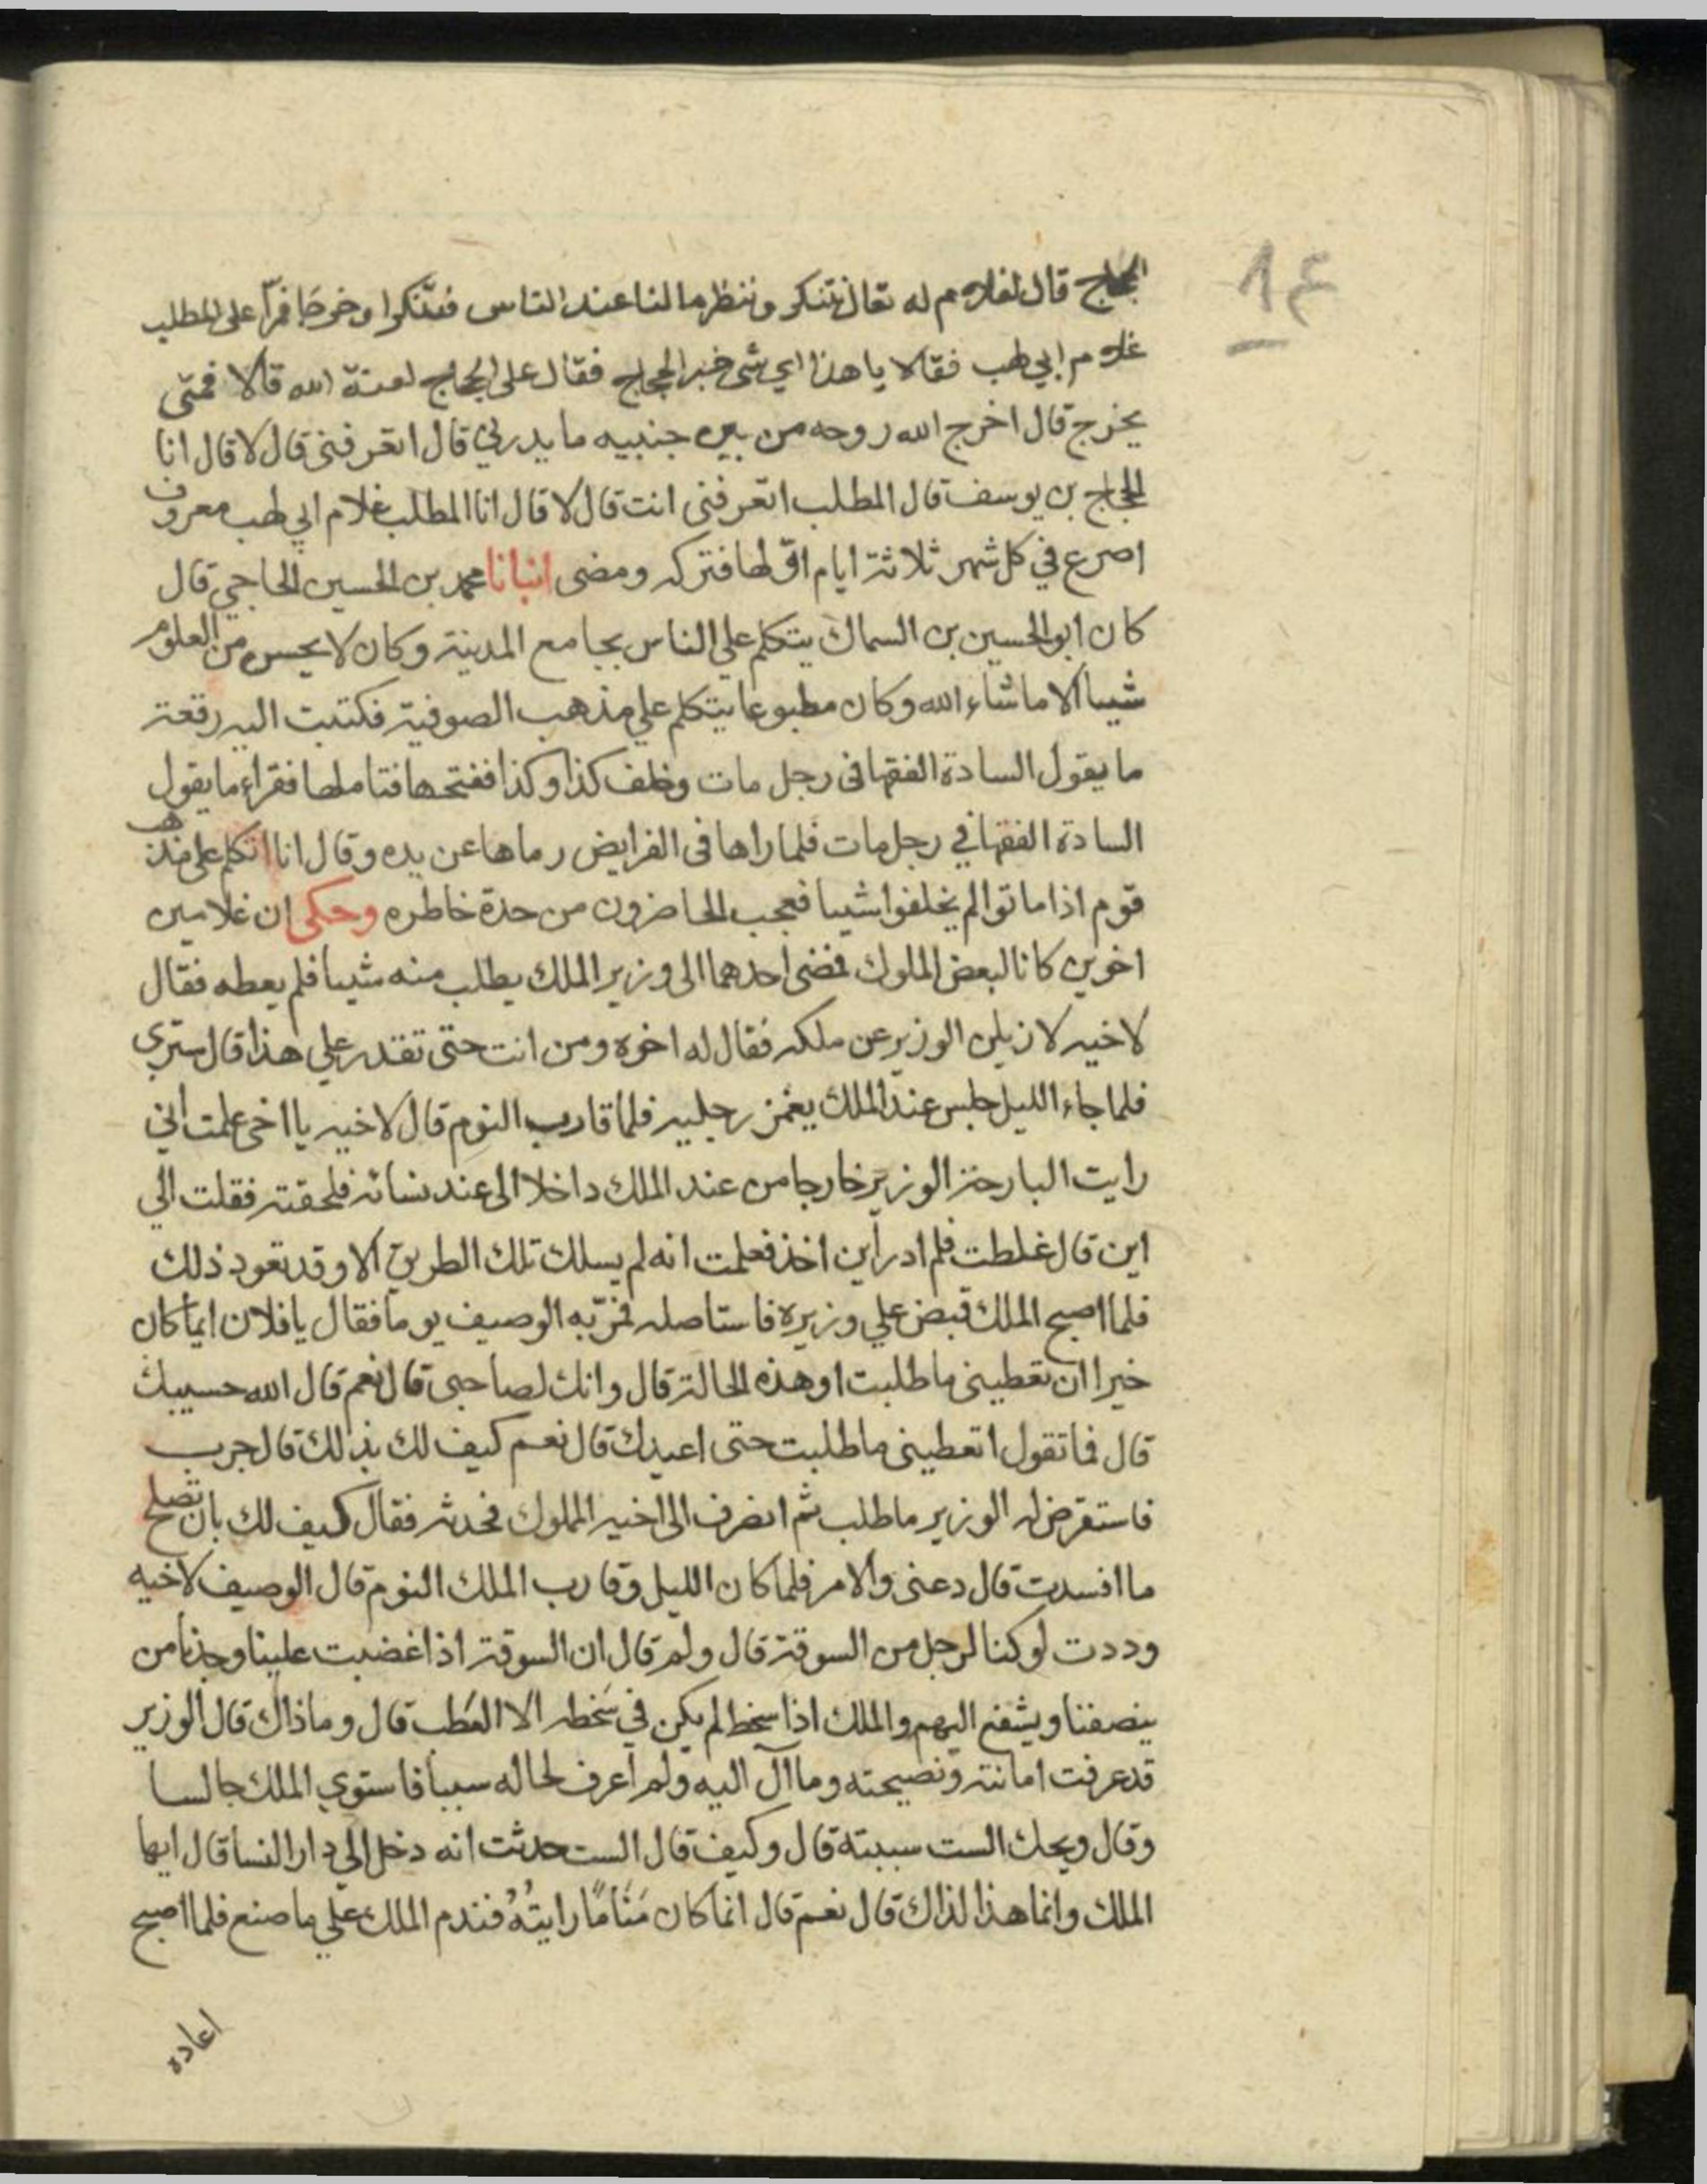 ١٤
الحجاج قال لغلام له تعال نتنكر وننظر ما لنا عند الناس فتنكرا وخرجا فمرّا على المطلب
غلام ابي لهب فقالا يا هذا اي شي خبر الحجاج فقال على الحجاج لعنة الله قالا فمتى
يخرج قال اخرج الله روحه من بين جنبيه ما يدريني قال اتعرفنى قال لا قال انا
الحجاج بن يوسف قال المطلب اتعرفنى انت قال لا قال انا المطلب غلام ابي لهب معروف
اصرع في كل شهر ثلاثة ايام اوّلها فتركه ومضى انبانا محمد بن الحسين الحاجي قال
كان ابو الحسين بن السماك يتكلم علي الناس بجامع المدينة وكان لا يحسن من العلوم
شيىا الا ما شاء الله وكان مطبوعا يتكلم علي مذهب الصوفية فكتبت اليه رقعة
ما يقول السادة الفقها فى رجل مات وخلف كذا وكذا ففتحها فتاملها فقراء ما يقول
السادة الفقها في رجل مات فلما راها فى الفرايض رماها عن يده وقال انا اتكلم على مذهب
قوم اذا ماتوا لم يخلفوا شيىا فعجب الحاضرون من حدة خاطره وحكى ان غلامين
اخوين كانا لبعض الملوك فمضى احدهما الى وزير الملك يطلب منه شيىا فلم يعطه فقال
لاخيه لازيلن الوزير عن ملكه فقال له اخوه ومن انت حتى تقدر علي هذا قال سترى
فلما جاء الليل جلس عند الملك يغمز رجليه فلما قارب النوم قال لاخيه يا اخى علمت اني
رايت البارحة الوزير خارجا من عند الملك داخلا الى عند نسائه فلحقته فقلت الي
اين قال غلطت فلم ادر اين اخذ فعلمت انه لم يسلك تلك الطريق الا وقد تعود ذلك
فلما اصبح الملك قبض علي وزيره فاستاصله فمرّ به الوصيف يوما فقال يا فلان ايما كان
خيرا ان تعطينى ما طلبت او هذه الحالة قال وانك لصاحبى قال نعم قال الله حسيبك
قال فما تقول اتعطينى ما طلبت حتى اعيدك قال نعم كيف لك بذلك قال جرب
فاستقرض له الوزير ما طلب ثم انصرف الى اخيه المملوك فحدثه فقال كيف لك بان تصلح
ما افسدت قال دعنى والامر فلما كان الليل وقارب الملك النوم قال الوصيف لاخيه
وددت لو كنا لرجل من السوقة قال ولم قال ان السوقة اذا غضبت علينا وجدنا من
ينصفنا ويشفع اليهم والملك اذا سخط لم يكن في سخطه الا العطب قال وما ذاك قال الوزير
قد عرفت امانته ونصيحته وما آل اليه ولم اعرف لحاله سببا فاستوي الملك جالسا
وقال ويحك الست سببته قال وكيف قال الست حدثت انه دخل الي دار النسا قال ايها
الملك وانما هذا لذاك قال نعم قال انما كان مَنَامًا رايتُهُ فندم الملك علي ما صنع فلما اصبح
اعاده